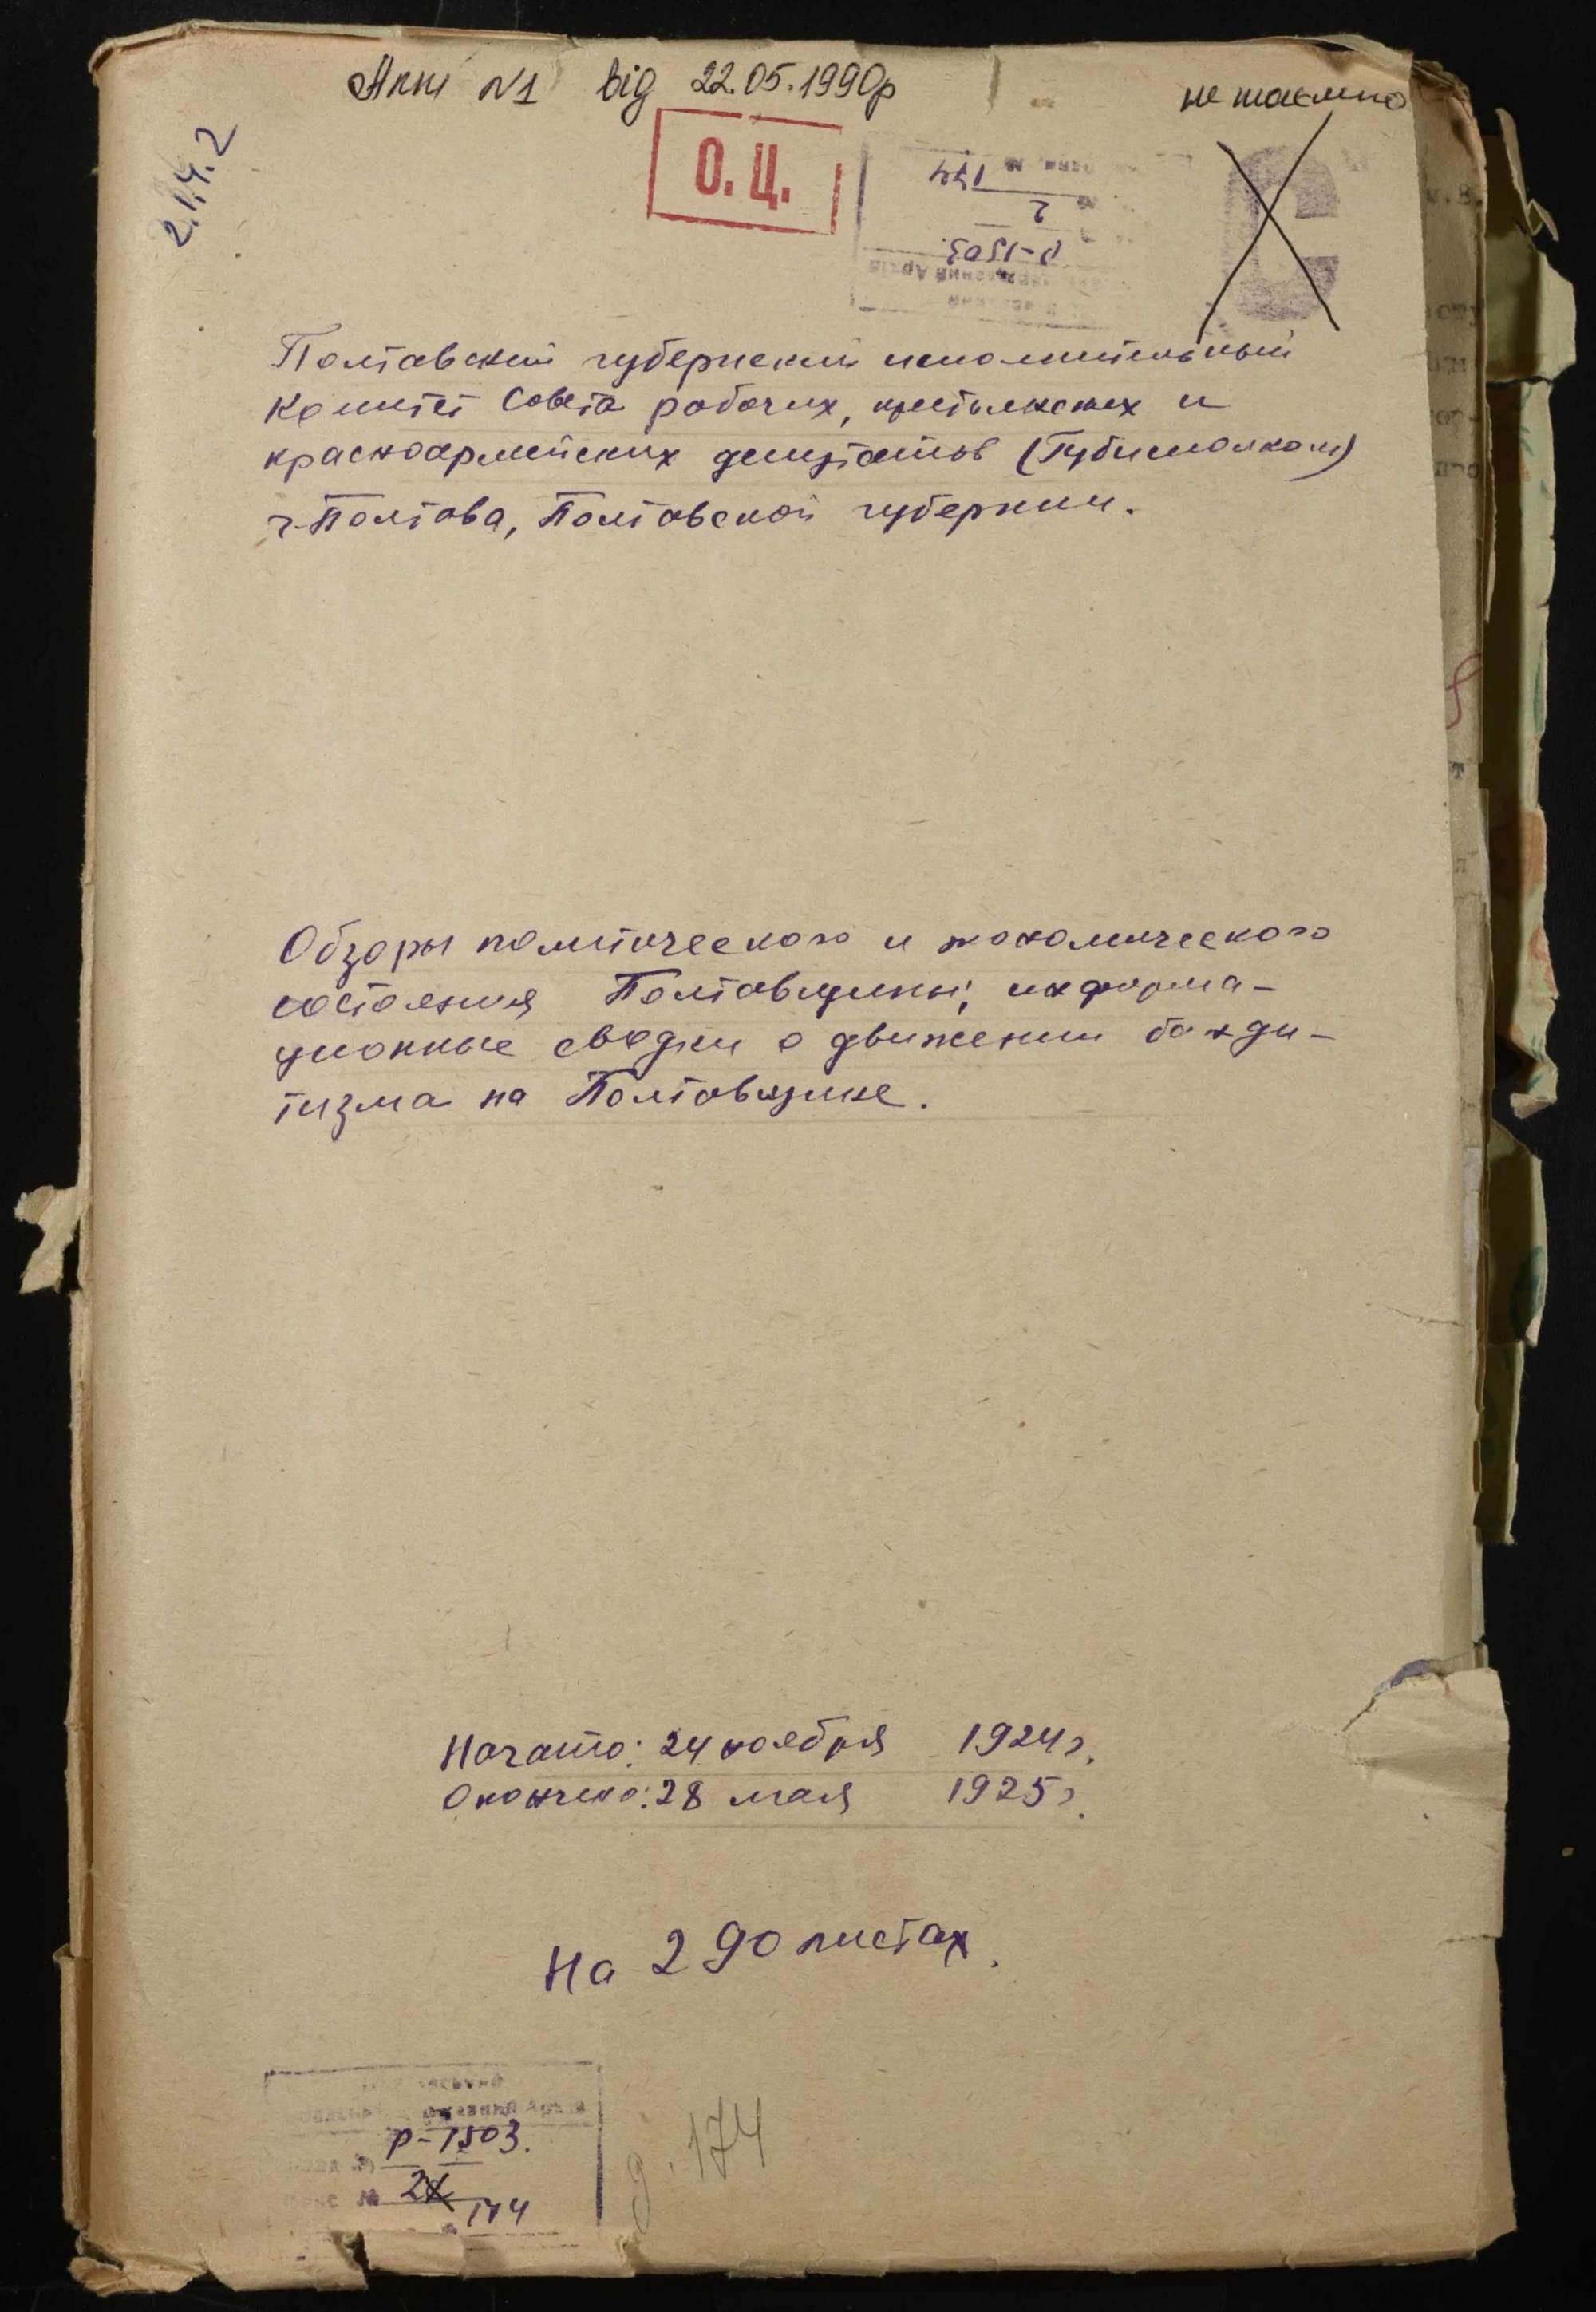 Акт №1 від 22.05.1990р
не таємно
2.1.4.2
О. Ц.
С
174
2
Р-1503.
Державний Архів
Полтавский губернский исполнительный
Комитет Совета рабочих, крестьянских и
красноармейских депутатов (Губисполком)
г. Полтава, Полтавской губернии.
Обзоры политического и экономического
состояния Полтавщины, информа-
ционные сводки о движении банди-
тизма на Полтавщине.
Начато: 24 ноября 1924г.
Окончено: 28 мая 1925г.
На 290 листах.
Р-1503.
№ 2
174
д. 174